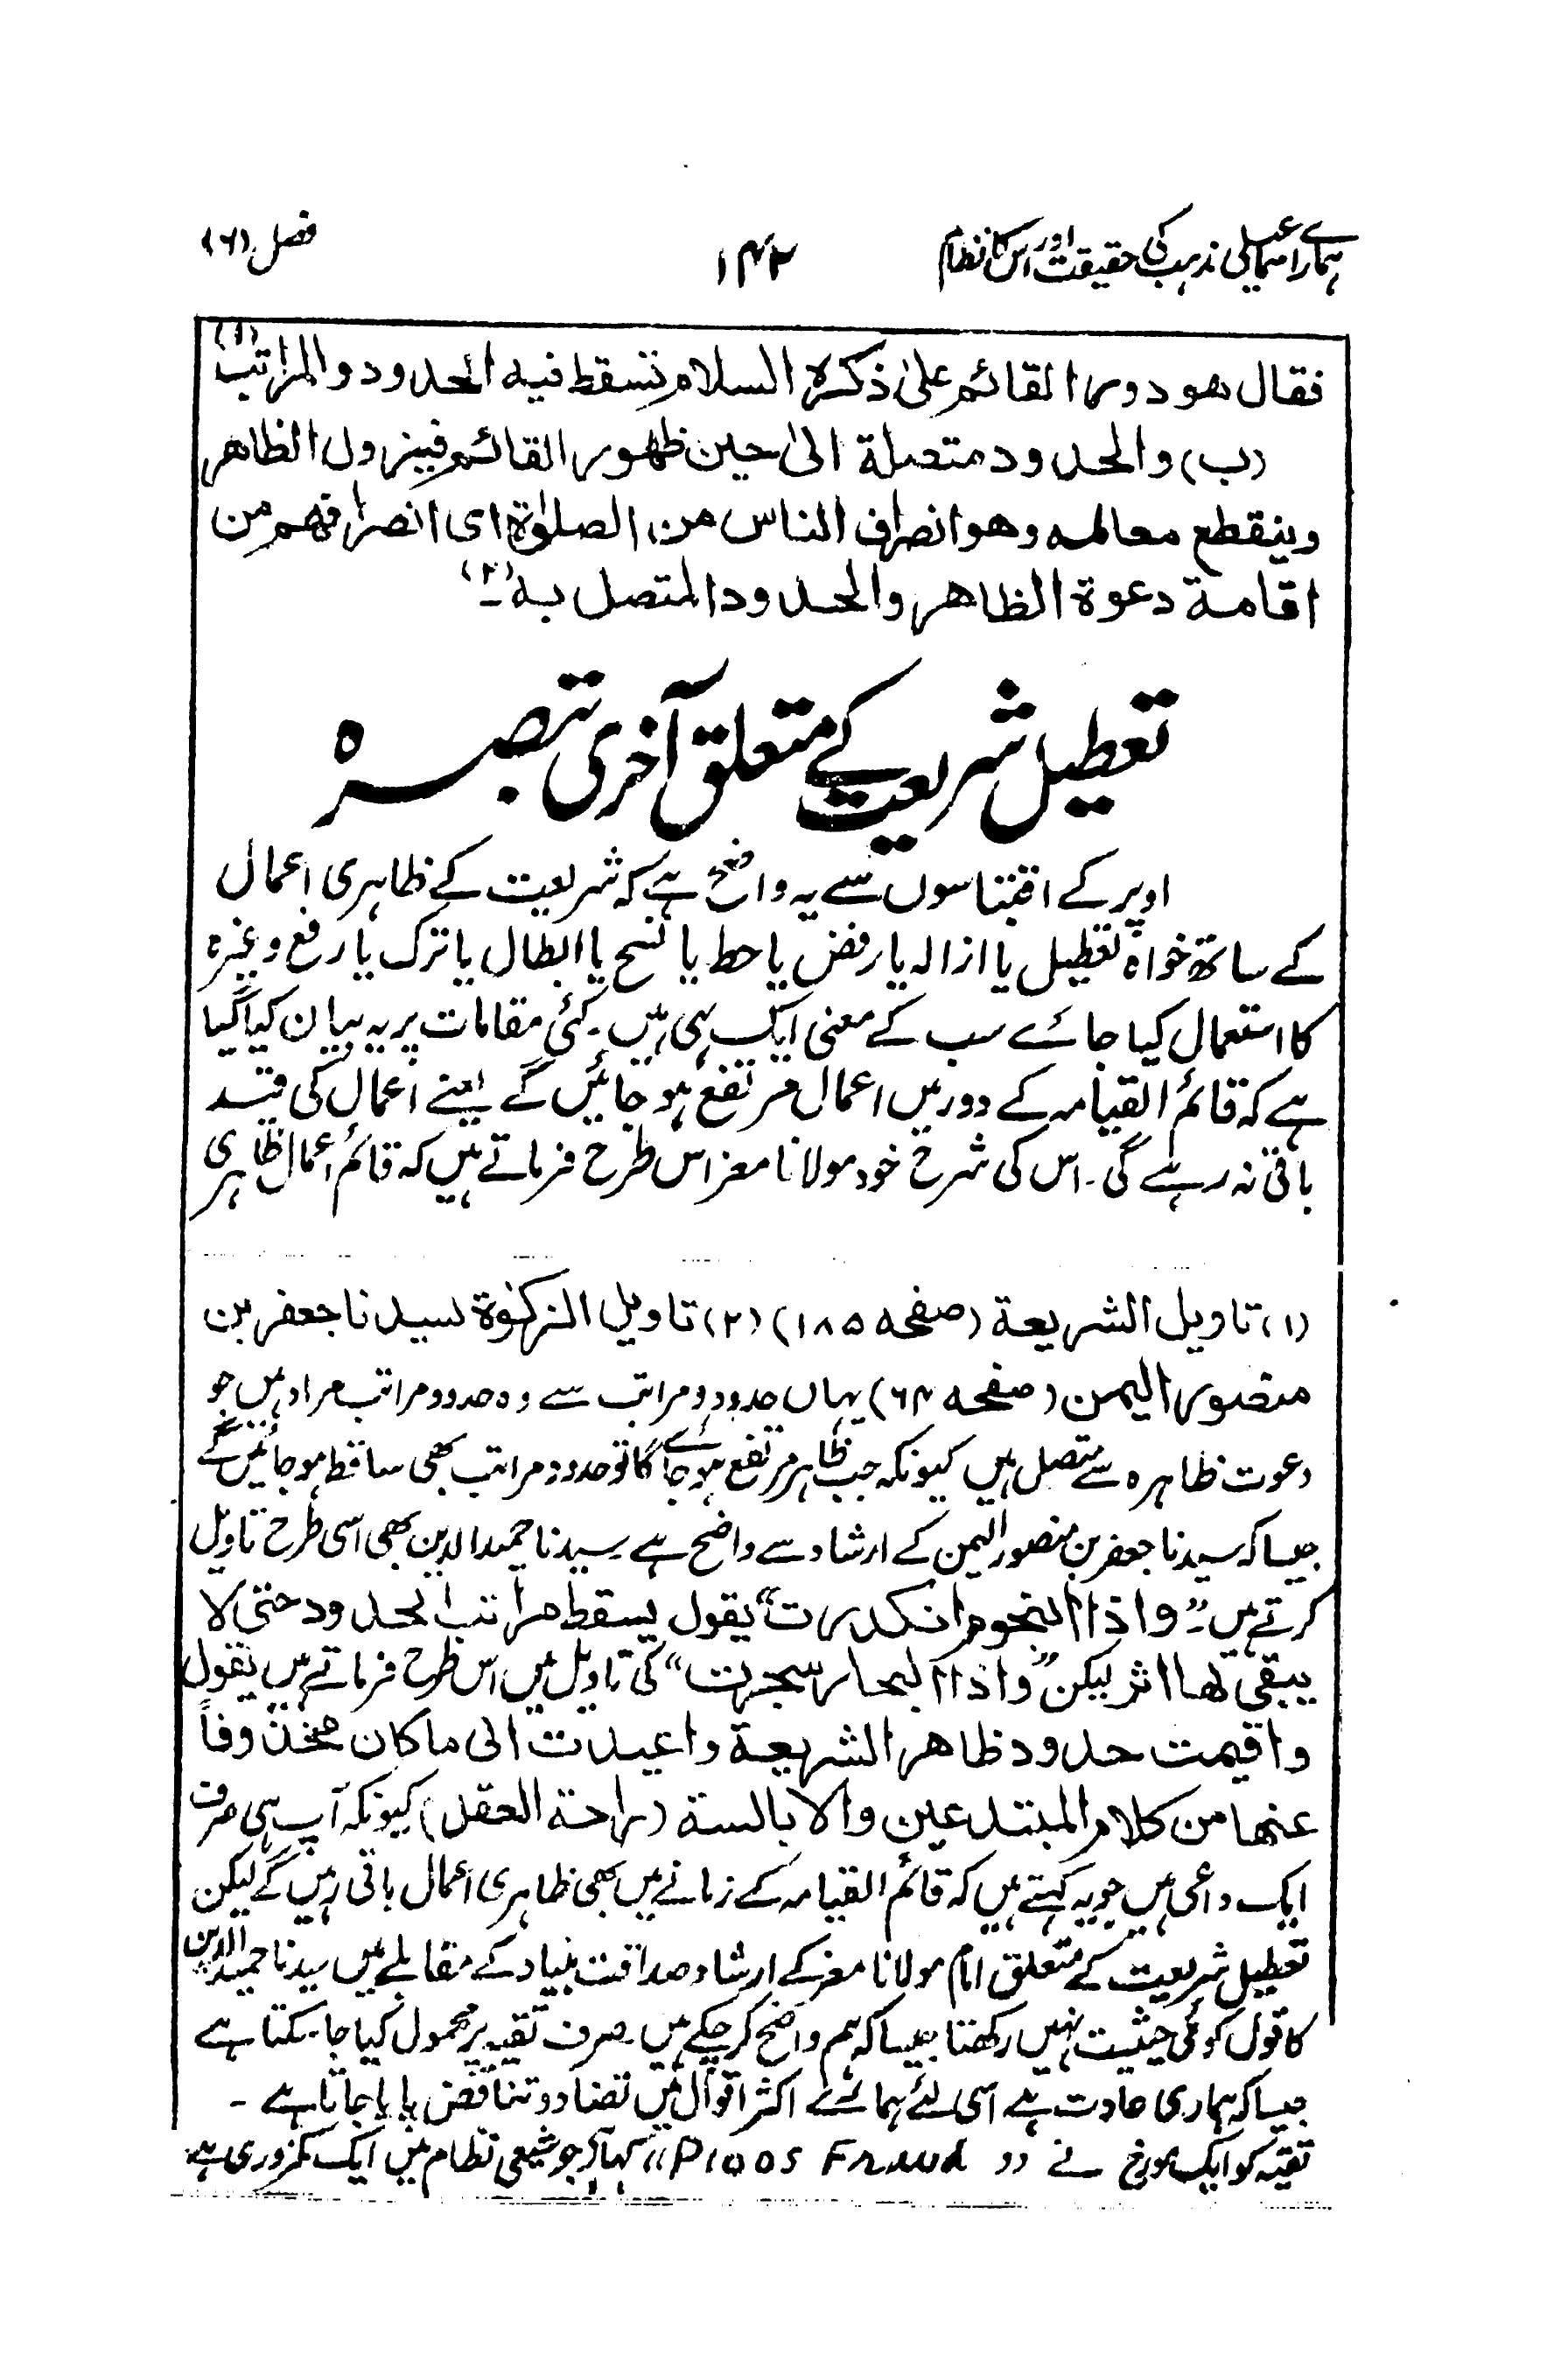 ہمارے اسماعیلی مذہب کی حقیقت اور اس کا نظام ۱۴۲ فصل (۶)
فقال هو دور القائم علیٰ ذكره السلام تسقط فيه الحدود والمراتب (۱)
(ب) والحدود متصلة الیٰ حين ظهور القائم فيزول الظاهر
وينقطع معالمه وهو انصراف الناس من الصلوٰة ای انصرافهم من
اقامة دعوة الظاهر والحدود المتصل به (۲)۔
تعطیل شریعت کے متعلق آخری تبصرہ
اوپر کے اقتباسوں سے یہ واضح ہے کہ شریعت کے ظاہری اعمال
کے ساتھ خواہ تعطیل یا ازالہ یا رفض یا حط یا نسخ یا ابطال یا ترک یا رفع وغیرہ
کا استعمال کیا جائے سب کے معنی ایک ہی ہیں۔ کئی مقامات پر یہ بیان کیا گیا
ہے کہ قائم القیامہ کے دور میں اعمال مرتفع ہو جائیں گے یعنے اعمال کی قید
باقی نہ رہے گی۔ اس کی شرح خود مولانا معز اس طرح فرماتے ہیں کہ قائم اعمال ظاہری
(۱) تاويل الشريعة (صفحه ۱۸۵) (۲) تاويل الزكوٰة لسيدنا جعفر بن
منصور اليمن (صفحه ۶۴) یہاں حدود و مراتب سے وہ حدود و مراتب مراد ہیں جو
دعوت ظاہرہ سے متصل ہیں کیونکہ جب ظاہر مرتفع ہو جائے گا تو حدود و مراتب بھی ساقط ہو جائیں گے
جیسا کہ سیدنا جعفر بن منصور الیمن کے ارشاد سے واضح ہے۔ سیدنا حمید الدین بھی اسی طرح تاویل
کرتے ہیں۔ ”واذا النجوم انكدرت“ يقول يسقط مراتب الحدود حتی لا
يبقی لها اثر لیکن ”واذا البحار سجرت“ کی تاویل میں اس طرح فرماتے ہیں يقول
واقيمت حدود ظاهر الشريعة واعيدت الی ما كان محذوفاً
عنها من كلام المبتدعين والابالسة (راحة العقل) کیونکہ آپ ہی صرف
ایک داعی ہیں جو یہ کہتے ہیں کہ قائم القیامہ کے زمانے میں بھی ظاہری اعمال باقی رہیں گے لیکن
تعطیل شریعت کے متعلق امام مولانا معز کے ارشاد صداقت بنیاد کے مقابلے میں سیدنا حمید الدین
کا قول کوئی حیثیت نہیں رکھتا جیسا کہ ہم واضح کر چکے ہیں۔ صرف تقیہ پر محمول کیا جا سکتا ہے
جیسا کہ ہماری عادت ہے اسی لئے ہمارے اکثر اقوال میں تضاد و تناقض پایا جاتا ہے۔
تقیہ کو ایک مورخ نے ”Pioos Fraud“ کہا کر جو شیعی نظام میں ایک کمزوری ہے۔